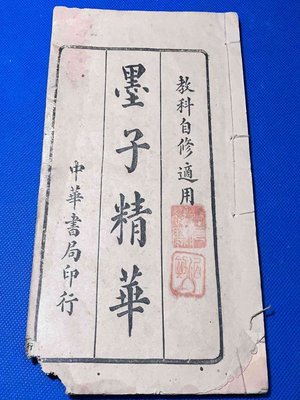 教科自修適用
墨子精華
中華書局印行